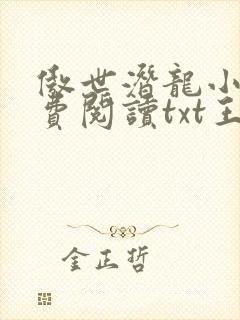 傲世潛龍小
費閱讀txt主
金正哲